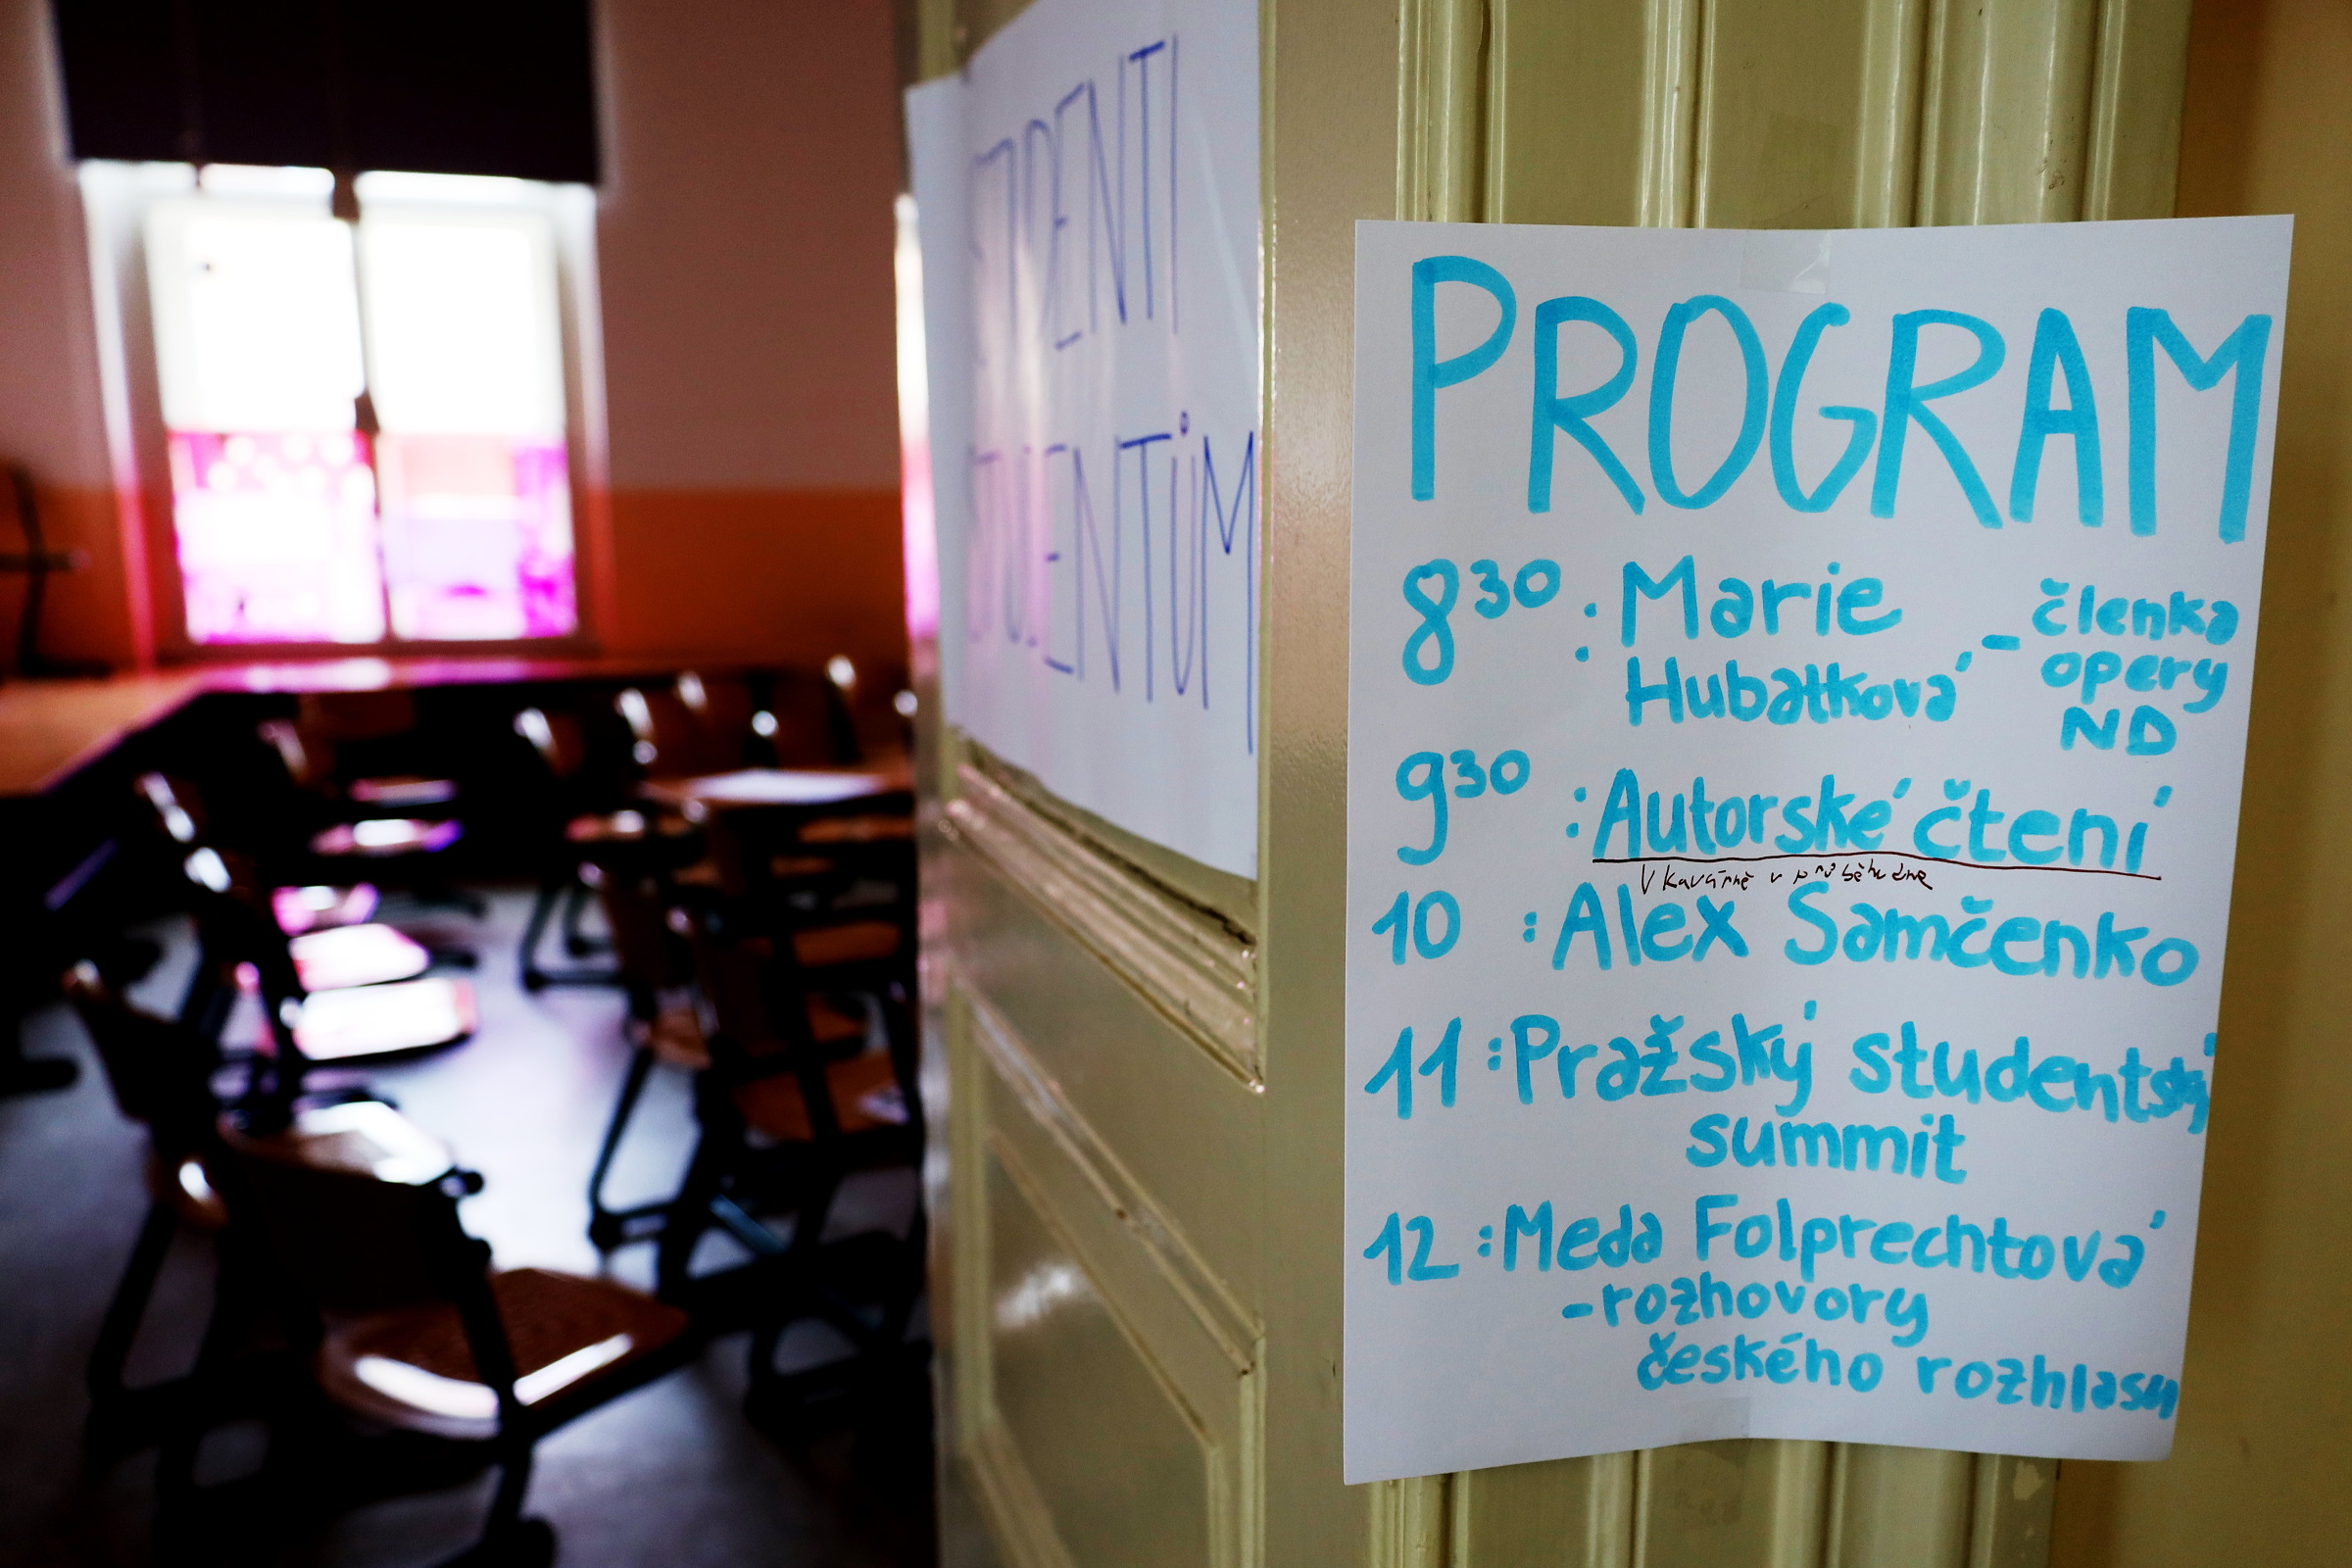 STUDENTI
STUDENTŮM
PROGRAM
8³⁰ : Marie - členka
Hubatková opery
ND
9³⁰ : Autorské čtení
V kavárně v průběhu dne
10 : Alex Samčenko
11 : Pražský studentský
summit
12 : Meda Folprechtová
- rozhovory
českého rozhlasu